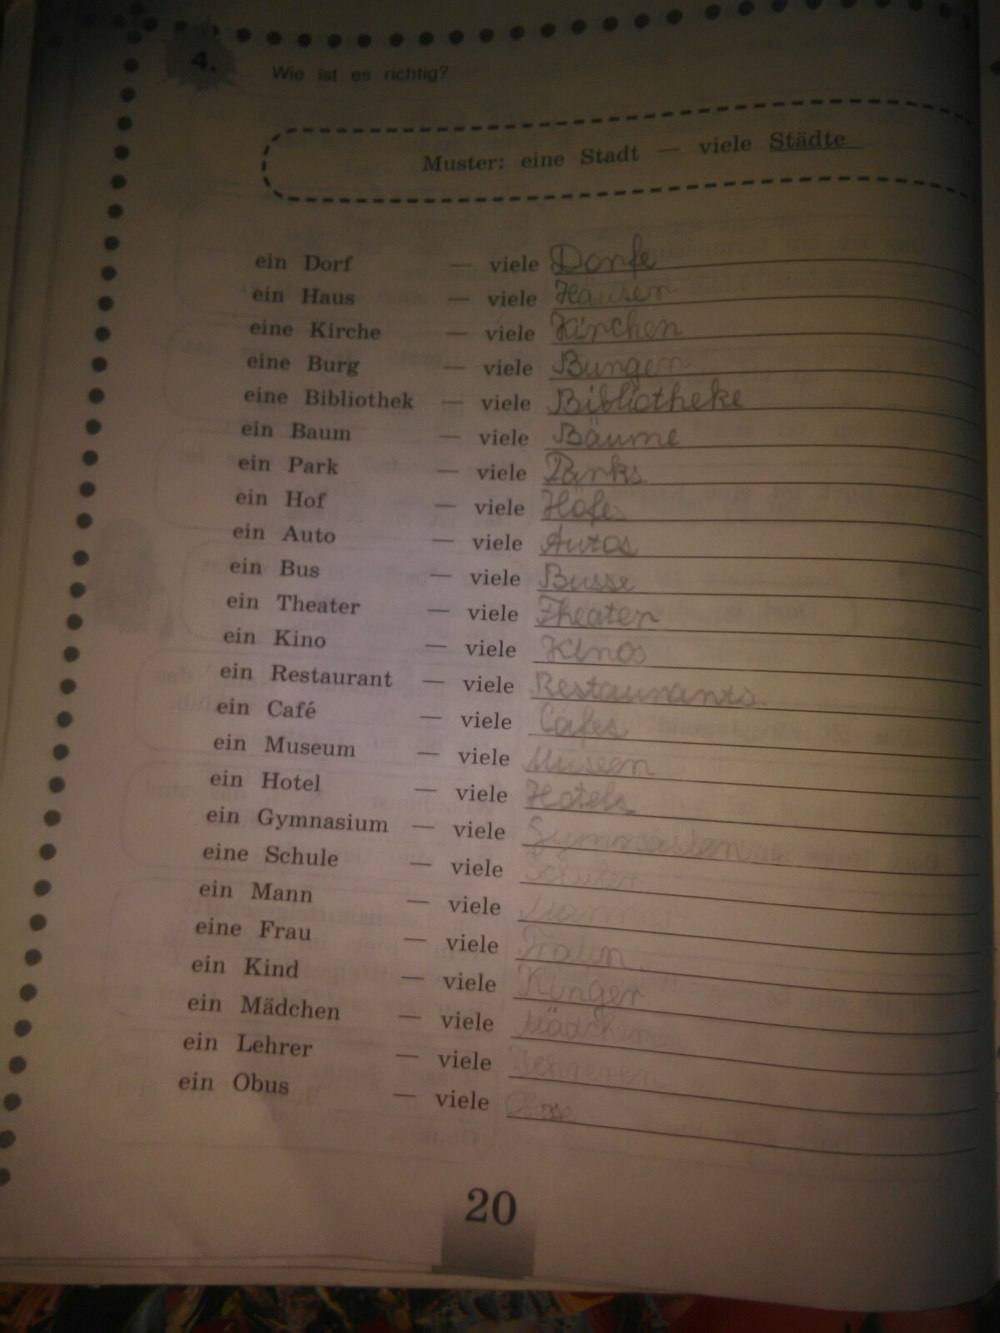 4. Wie ist es richtig?
Muster: eine Stadt — viele Städte
ein Dorf — viele Dorfe
ein Haus — viele Hausen
eine Kirche — viele Kirchen
eine Burg — viele Burgen
eine Bibliothek — viele Bibliotheke
ein Baum — viele Bäume
ein Park — viele Parks
ein Hof — viele Hofe
ein Auto — viele Autos
ein Bus — viele Busse
ein Theater — viele Theater
ein Kino — viele Kinos
ein Restaurant — viele Restaurants
ein Café — viele Cafes
ein Museum — viele Museen
ein Hotel — viele Hotels
ein Gymnasium — viele
eine Schule — viele
ein Mann — viele
eine Frau — viele
ein Kind — viele
ein Mädchen — viele
ein Lehrer — viele
ein Obus — viele
20